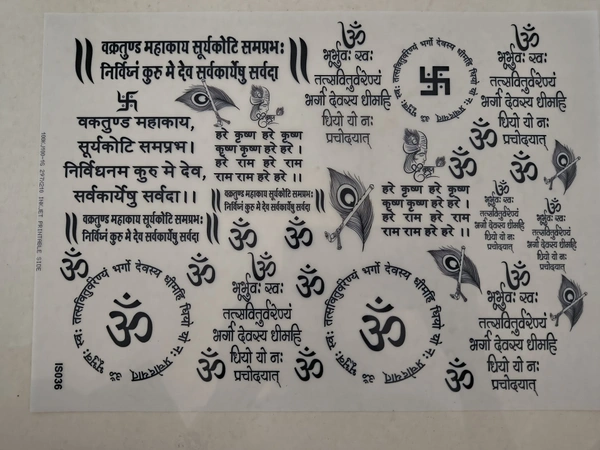 ॥ वक्रतुण्ड महाकाय सूर्यकोटि समप्रभः
निर्विघ्नं कुरु मे देव सर्वकार्येषु सर्वदा ॥
ॐ
भूर्भुवः स्वः
तत्सवितुर्वरेण्यं
भर्गो देवस्य धीमहि
धियो यो नः
प्रचोदयात्
ॐ भूर्भुवः स्वः तत्सवितुर्वरेण्यं भर्गो देवस्य धीमहि धियो यो नः प्रचोदयात्
卐
ॐ
भूर्भुवः स्वः
तत्सवितुर्वरेण्यं
भर्गो देवस्य धीमहि
धियो यो नः
प्रचोदयात्
卐
वक्रतुण्ड महाकाय,
सूर्यकोटि समप्रभ।
निर्विघ्नम कुरु मे देव,
सर्वकार्येषु सर्वदा।।
हरे कृष्ण हरे कृष्ण
कृष्ण कृष्ण हरे हरे ।
हरे राम हरे राम
राम राम हरे हरे ।।
ॐ
ॐ
ॐ
॥ वक्रतुण्ड महाकाय सूर्यकोटि समप्रभः
निर्विघ्नं कुरु मे देव सर्वकार्येषु सर्वदा ॥
हरे कृष्ण हरे कृष्ण
कृष्ण कृष्ण हरे हरे ।
हरे राम हरे राम
राम राम हरे हरे ।।
ॐ
भूर्भुवः स्वः
तत्सवितुर्वरेण्यं
भर्गो देवस्य धीमहि
धियो यो नः
प्रचोदयात्
ॐ
भूर्भुवः स्वः
तत्सवितुर्वरेण्यं
भर्गो देवस्य धीमहि
धियो यो नः
प्रचोदयात्
॥ वक्रतुण्ड महाकाय सूर्यकोटि समप्रभः
निर्विघ्नं कुरु मे देव सर्वकार्येषु सर्वदा ॥
ॐ
ॐ
ॐ
ॐ
ॐ भूर्भुवः स्वः तत्सवितुर्वरेण्यं भर्गो देवस्य धीमहि धियो यो नः प्रचोदयात्
ॐ
ॐ
भूर्भुवः स्वः
तत्सवितुर्वरेण्यं
भर्गो देवस्य धीमहि
धियो यो नः
प्रचोदयात्
ॐ
ॐ
ॐ
ॐ भूर्भुवः स्वः तत्सवितुर्वरेण्यं भर्गो देवस्य धीमहि धियो यो नः प्रचोदयात्
ॐ
ॐ
भूर्भुवः स्वः
तत्सवितुर्वरेण्यं
भर्गो देवस्य धीमहि
धियो यो नः
प्रचोदयात्
ॐ
INKJET PRINTABLE SIDE
IS036